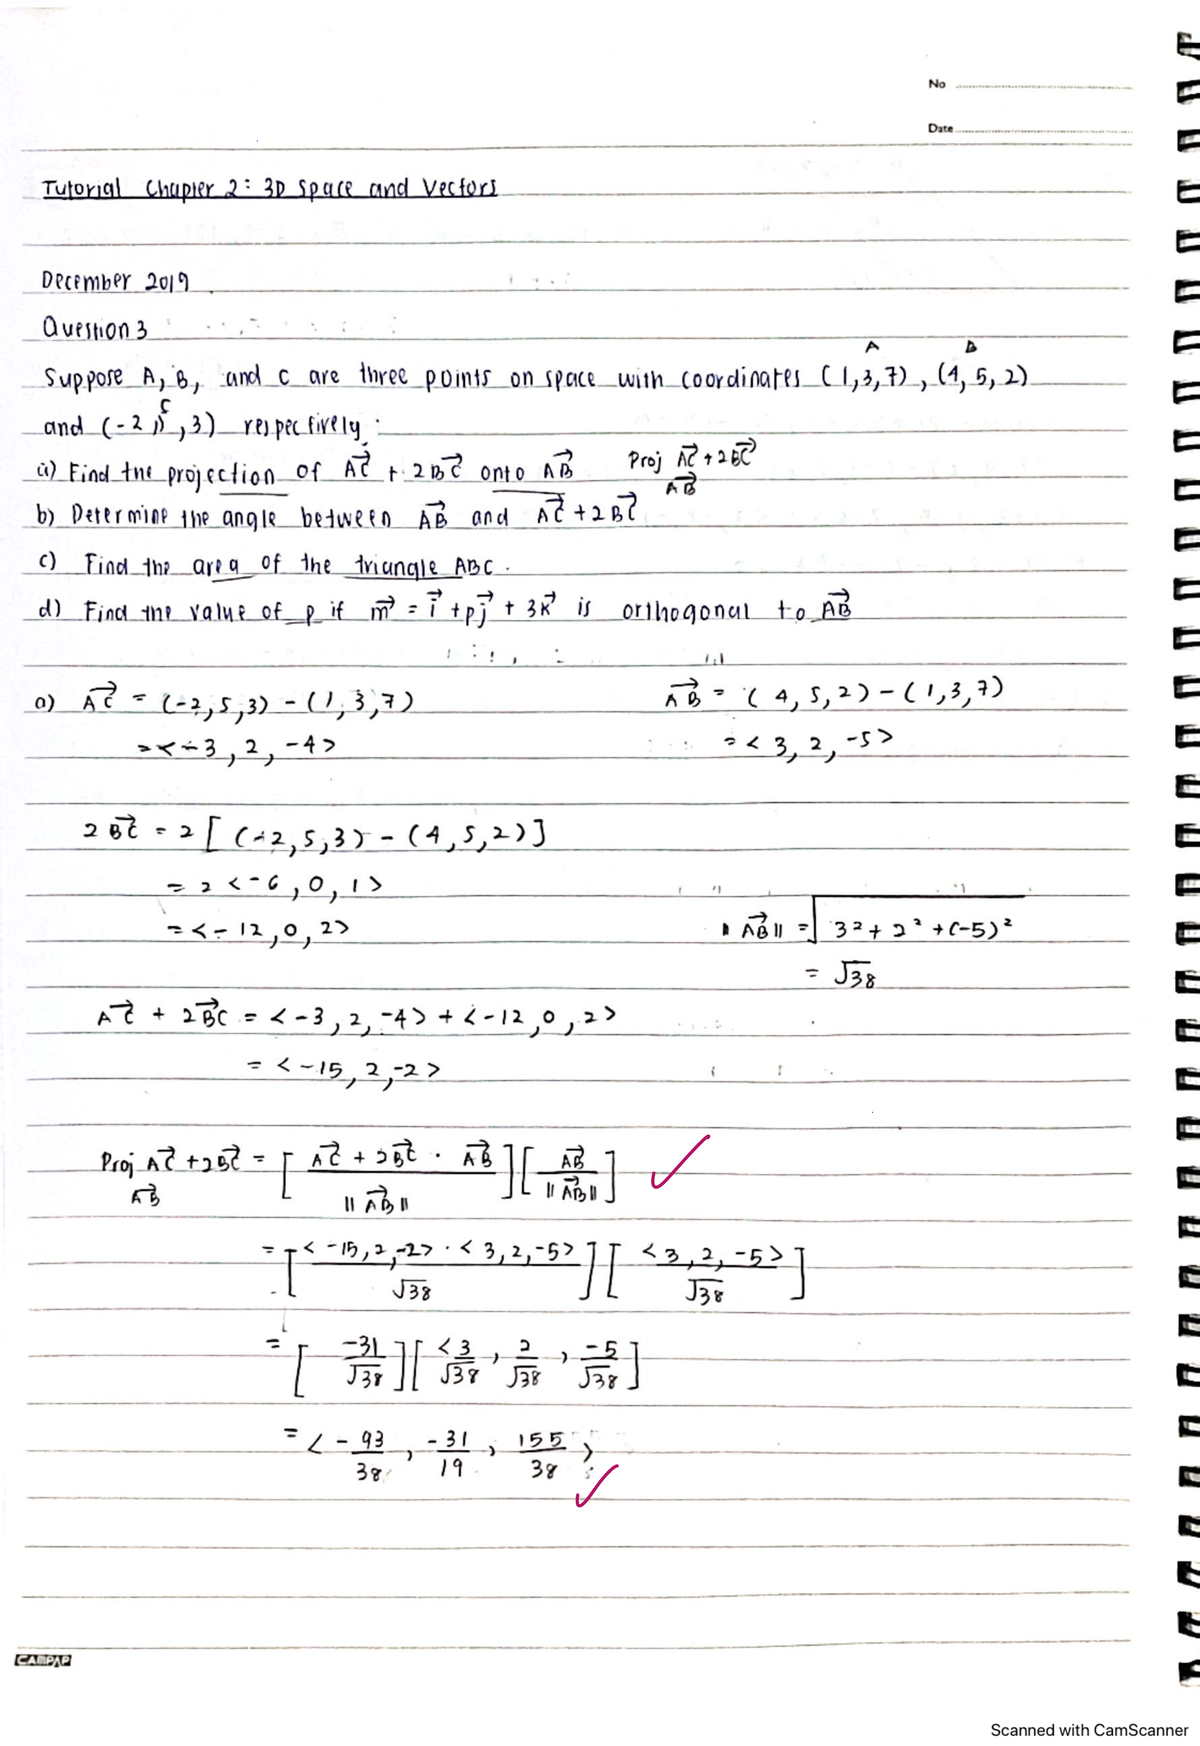 No
Date
Tutorial Chapter 2: 3D Space and Vectors
December 2019
Question 3
A B
Suppose A, B, and C are three points on space with coordinates (1,3,7), (4,5,2)
C
and (-2,5,3) respectively:
a) Find the projection of AC→ + 2BC→ onto AB→ Proj AC→ + 2BC→
AB→
b) Determine the angle between AB→ and AC→ + 2BC→
c) Find the area of the triangle ABC.
d) Find the value of p if m→ = i→ + pj→ + 3k→ is orthogonal to AB→
a) AC→ = (-2,5,3) - (1,3,7) AB→ = (4,5,2) - (1,3,7)
= <-3, 2, -4> = <3, 2, -5>
2BC→ = 2[(-2,5,3) - (4,5,2)]
= 2<-6, 0, 1>
= <-12, 0, 2> ||AB→|| = √3² + 2² + (-5)²
= √38
AC→ + 2BC→ = <-3, 2, -4> + <-12, 0, 2>
= <-15, 2, -2>
Proj AC→ + 2BC→ = [AC→ + 2BC→ · AB→ / ||AB→||][AB→ / ||AB→||] ✓
AB→
= [<-15,2,-2> · <3,2,-5> / √38][<3,2,-5> / √38]
= [-31/√38][<3/√38, 2/√38, -5/√38]
= <-93/38, -31/19, 155/38> ✓
CAMPAP
Scanned with CamScanner